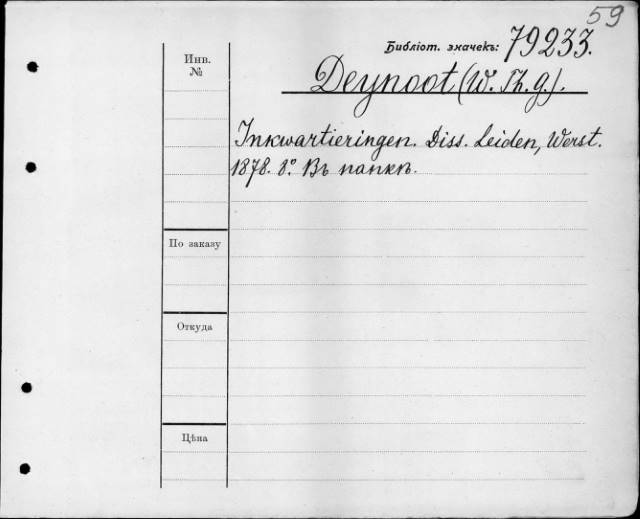 59
Библіот. значекъ: 79233.
Инв.
№
Deynoot (W. Th. g.).
Inkwartieringen. Diss. Leiden, Werst.
1878. 8°. Въ папкѣ.
По заказу
Откуда
Цѣна